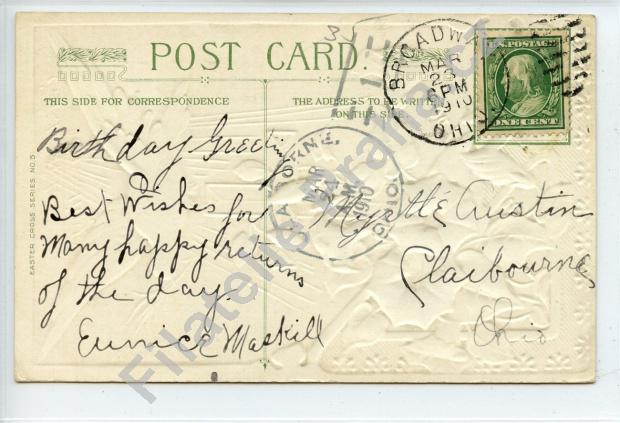 POST CARD.
THIS SIDE FOR CORRESPONDENCE
THE ADDRESS TO BE WRITTEN
ON THIS SIDE
BROADWA
MAR
23
6 PM
1910
OHIO
U.S. POSTAGE
ONE CENT
EASTER CROSS SERIES NO. 5
Birthday Greeting
Best Wishes for
Many happy returns
of the day.
Eunice Maskill
MAR
AM
1910
OHIO
Myrtle Austin
Claibourne
Ohio
Filatelie Praha.cz